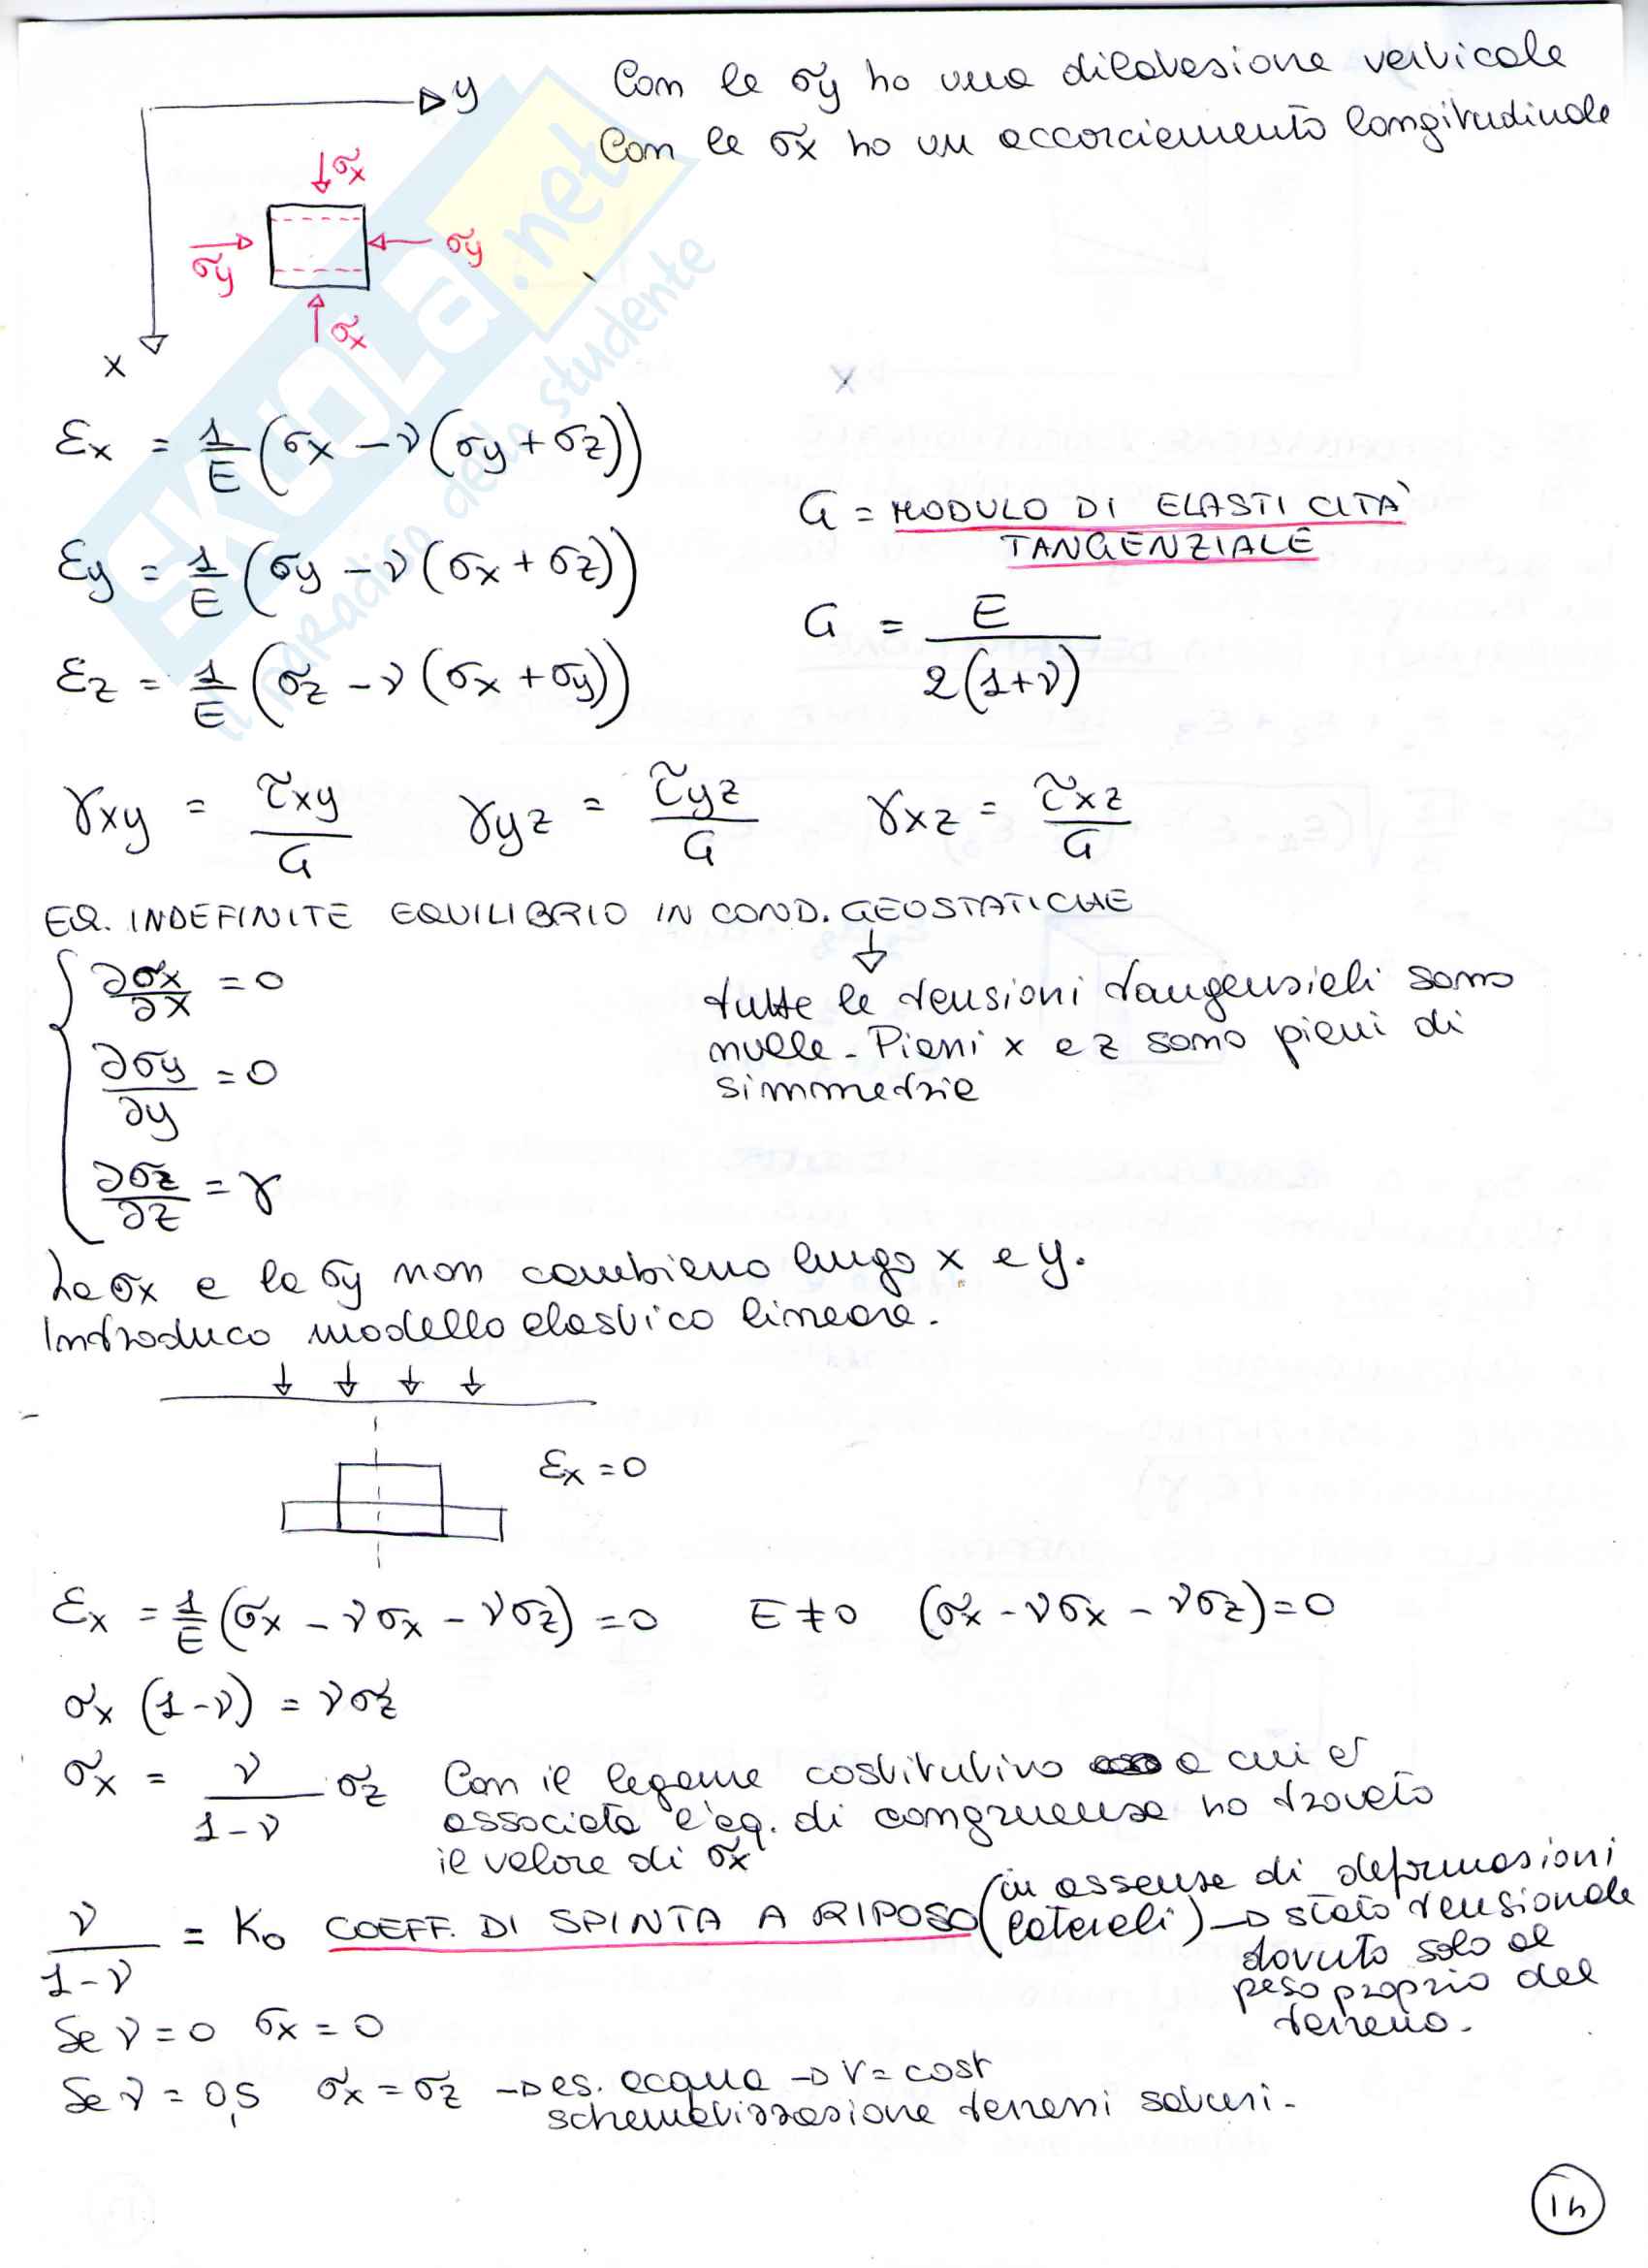 y
Con le σy ho una dilatazione verticale
Con le σx ho un accorciamento longitudinale
σx
σy
σy
σx
x
SKUOLA.net
il paradiso dello studente
εx = 1/E (σx - ν(σy + σz))
εy = 1/E (σy - ν(σx + σz))
εz = 1/E (σz - ν(σx + σy))
G = MODULO DI ELASTICITÀ
TANGENZIALE
G = E / 2(1+ν)
γxy = τxy / G γyz = τyz / G γxz = τxz / G
EQ. INDEFINITE EQUILIBRIO IN COND. GEOSTATICHE
∂σx/∂x = 0
∂σy/∂y = 0
∂σz/∂z = γ
tutte le tensioni tangenziali sono
nulle - Piani x e z sono piani di
simmetria
La σx e la σy non cambiano lungo x e y.
Introduco modello elastico lineare.
εx = 0
εx = 1/E (σx - νσx - νσz) = 0 E ≠ 0 (σx - νσx - νσz) = 0
σx (1-ν) = νσz
σx = ν/1-ν σz
Con il legame costitutivo a cui è
associata l'eq. di congruenza ho trovato
il valore di σx
ν/1-ν = K0 COEFF. DI SPINTA A RIPOSO (in assenza di deformazioni
laterali) → stato tensionale
dovuto solo al
peso proprio del
terreno.
Se ν = 0 σx = 0
Se ν = 0,5 σx = σz → es. acqua → V = cost
schematizzazione terreni saturi.
14